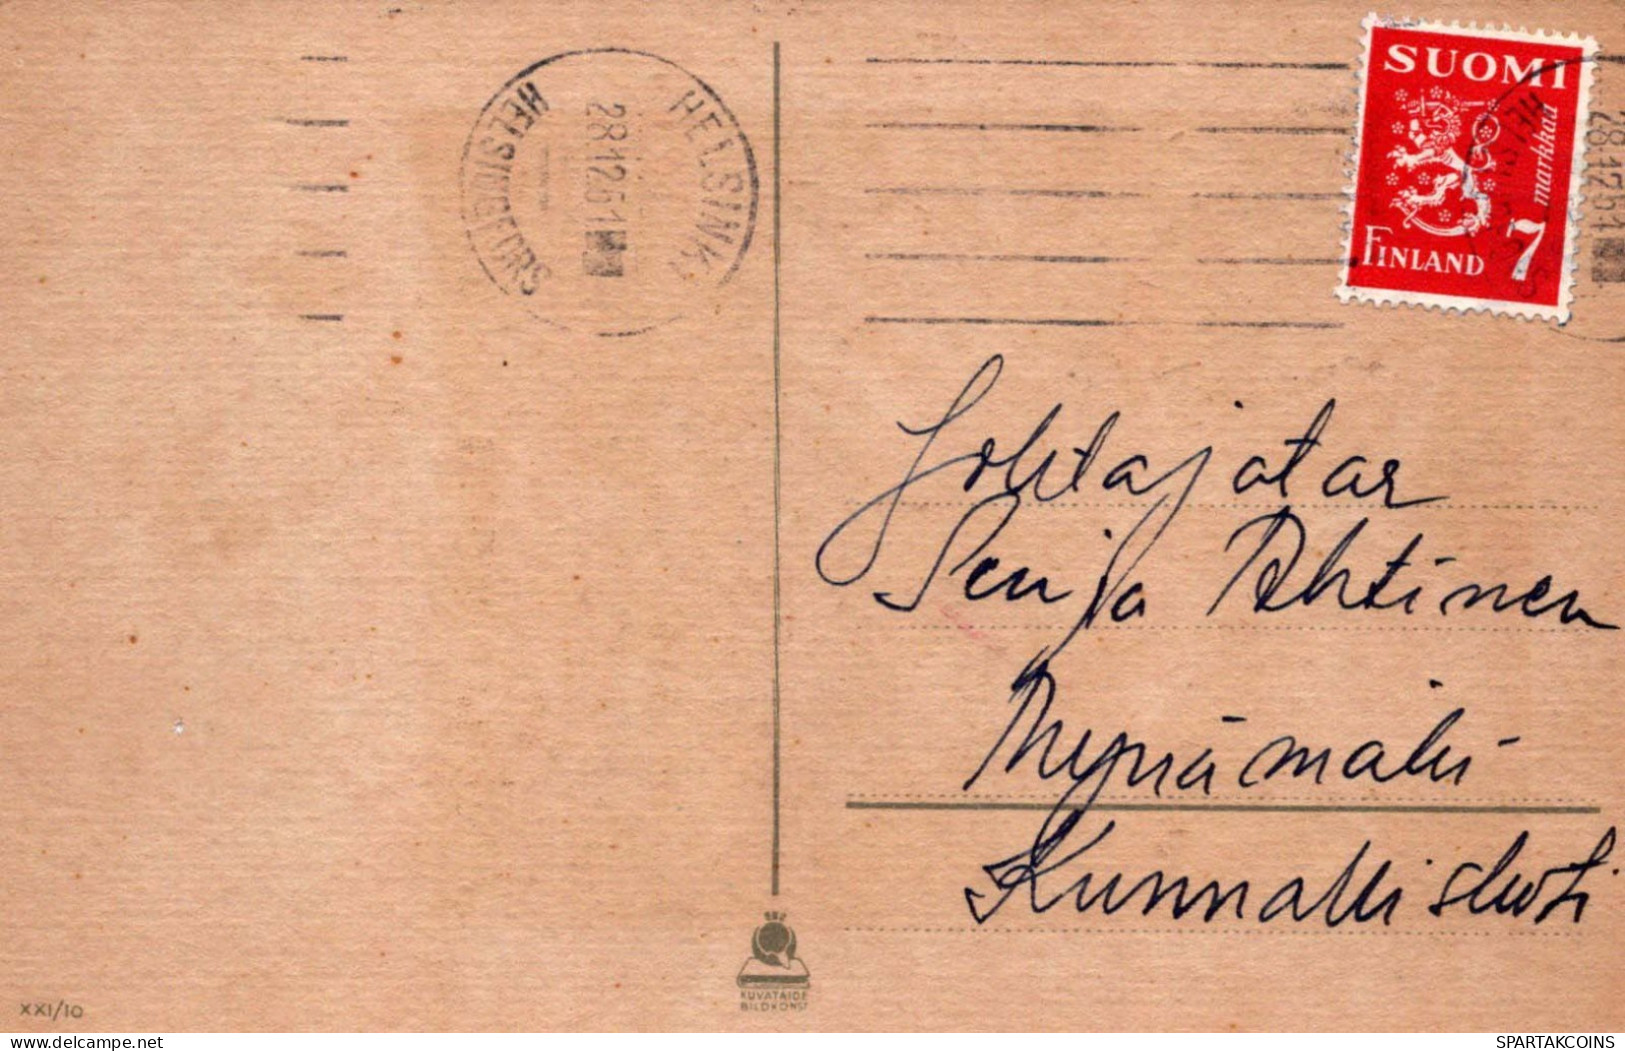 HELSINKI
28.12.51
HELSINGFORS
SUOMI
7 markkaa
FINLAND
28.12.51
Johtajatar
Senja Ahtinen
Mynämäki
Kunnalliskoti
KUVATAIDE
BILDKONST
XXI/10
SPARTAKCOINS